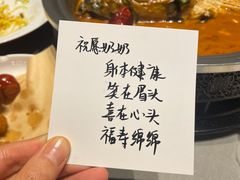 祝愿奶奶
身体健康
笑在眉头
喜在心头
福寿绵绵